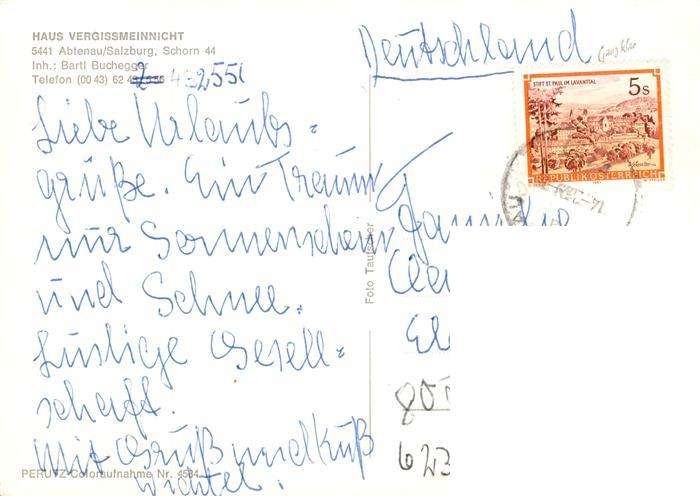 HAUS VERGISSMEINNICHT
5441 Abtenau/Salzburg, Schorn 44
Inh.: Bartl Buchegger
Telefon (00 43) 62 43-2551
Deutschland
STIFT ST. PAUL IM LAVANTTAL
5 S
REPUBLIK ÖSTERREICH
Liebe Urlaubs-
grüße. Ein Traum
nur Sonnenschein
und Schnee.
Lustige Gesell-
schaft.
Mit Gruß und Kuß
Wichtel.
Familie
Foto Tautscher
PERUTZ-Coloraufnahme Nr. 4534